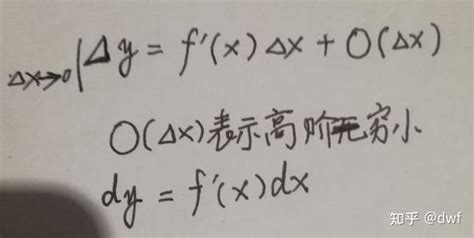 Δx→0|Δy = f'(x)Δx + O(Δx)
O(Δx)表示高阶无穷小
dy = f'(x)dx
知乎 @dwf